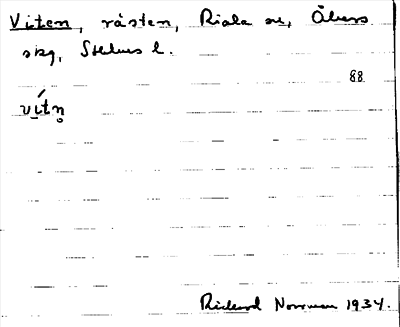 Viten, råsten, Riala sn, Åkers
skg, Sthlms l.
88
vítn̥
Rickard Norrman 1934.